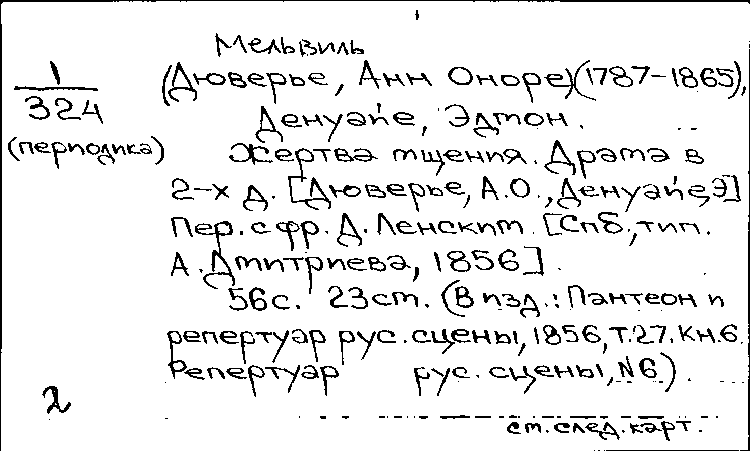 Мельвиль
1/324
(Дюверье, Анн Оноре)(1787-1865),
Денуайе, Эдмон.
(периодика)
Жертва мщения. Драма в
2-х д. [Дюверье, А.О., Денуайе, Э]
Пер. с фр. Д. Ленским. [Спб., тип.
А. Дмитриева, 1856].
56с. 23см. (В изд.: Пантеон и
репертуар рус. сцены, 1856, т.27. Кн.6.
Репертуар рус. сцены, №6).
2
см. след. карт.